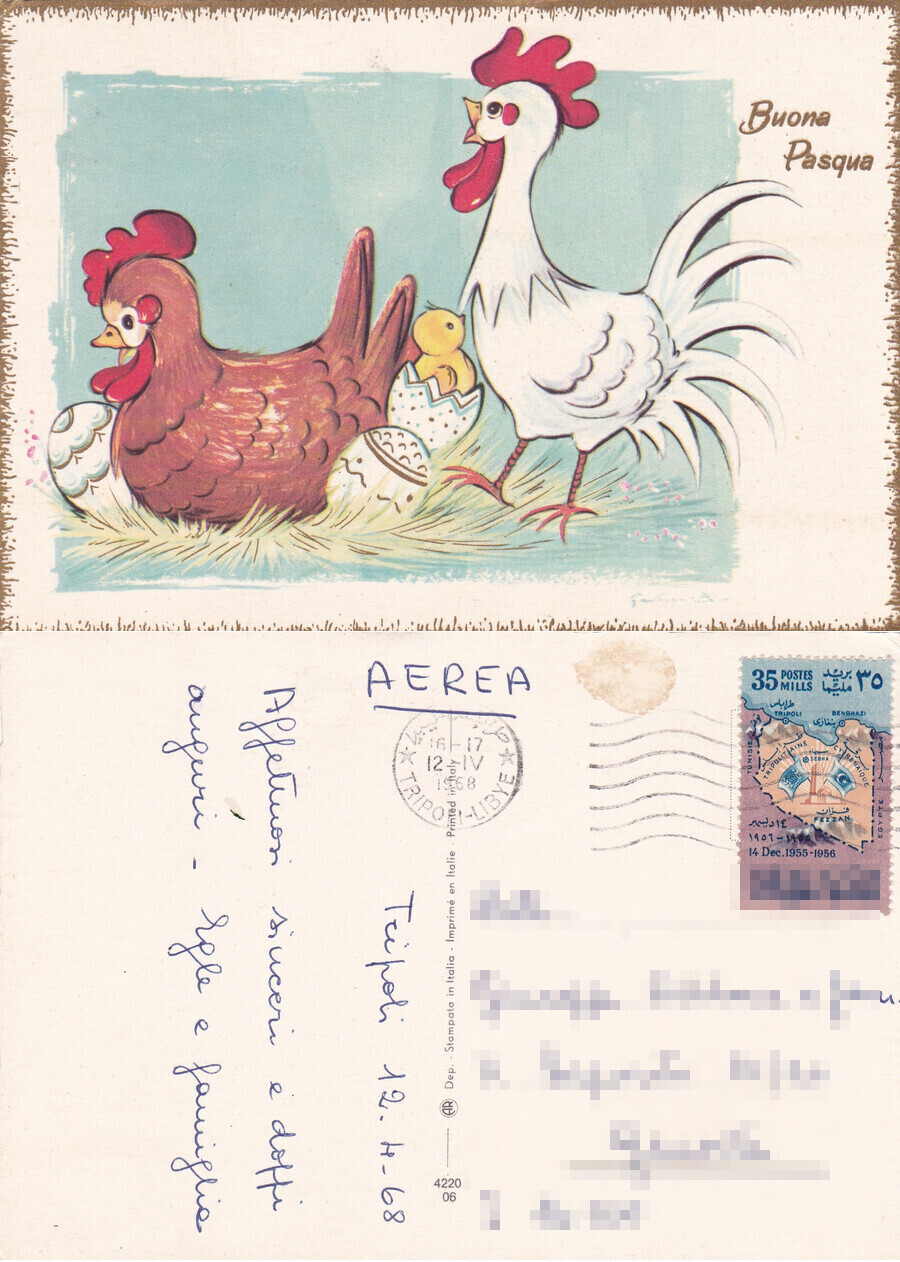 Buona
Pasqua
AEREA
35 POSTES
MILLS
بريد
مليما
٣٥
طرابلس
TRIPOLI
BENGHAZI
بنغازي
TUNISIE
TRIPOLITAINE
CYRENAIQUE
SEBHA
فزان
FEZZAN
EGYPTE
١٤ ديسمبر
١٩٥٥-١٩٥٦
14 Dec. 1955-1956
16-17
12-IV
1968
TRIPOLI-LIBYE
Tripoli 12.4-68
Affettuosi sinceri e doppi
auguri - Egle e famiglia
AR Dep. - Stampata in Italia - Imprimé en Italie - Printed in Italy
4220
06